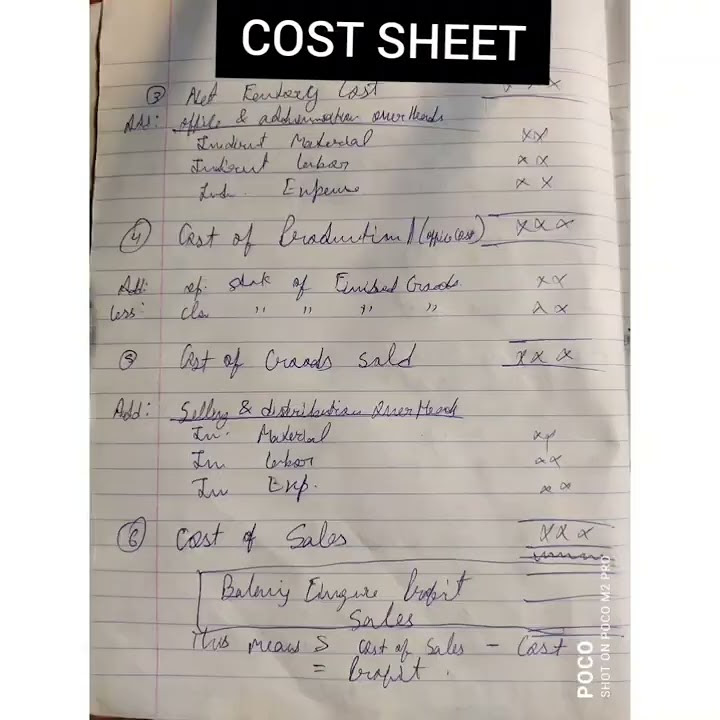 COST SHEET
③ Net Factory Cost xxx
Add: office & administration overheads
Indirect Material xx
Indirect Labor xx
Ind. Expense xx
④ Cost of Production / (office cost) xxx
Add: op. stock of Finised Goods xx
Less: Clo " " " " xx
⑤ Cost of Goods Sold xxx
Add: Selling & distribution OverHeads
In. Material xx
In Labor xx
In Exp. xx
⑥ Cost of Sales xxx
Profit
Sales
This means S cost of Sales - Cost
= Profit.
POCO
SHOT ON POCO M2 PRO